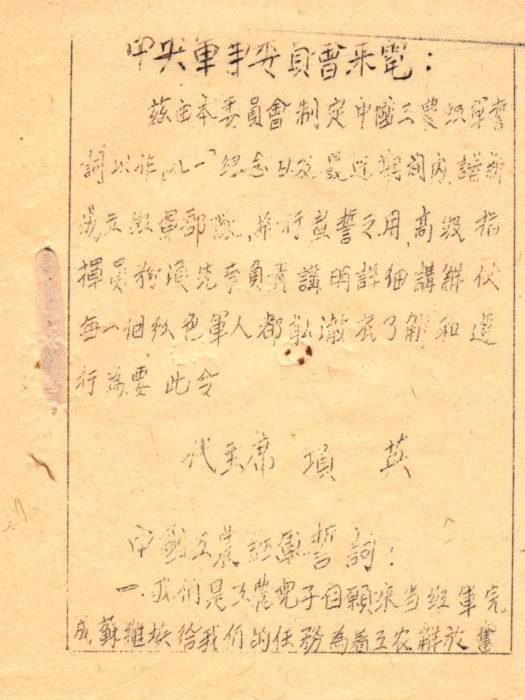 中央軍事委員會來電:
茲由本委員會制定中國工農红軍誓
詞以作「八一」紀念以及最近期间内,諸新
成立红軍部隊,举行宣誓之用,高級指
揮員務須先李負責講明詳细講解使
每一個红色軍人都能澈底了解和遵
行為要此令
代主席 項 英
中國工農红軍誓詞:
一、我們是工農兒子自願來当红軍完
成蘇維埃给我們的任務為着工农解放奮